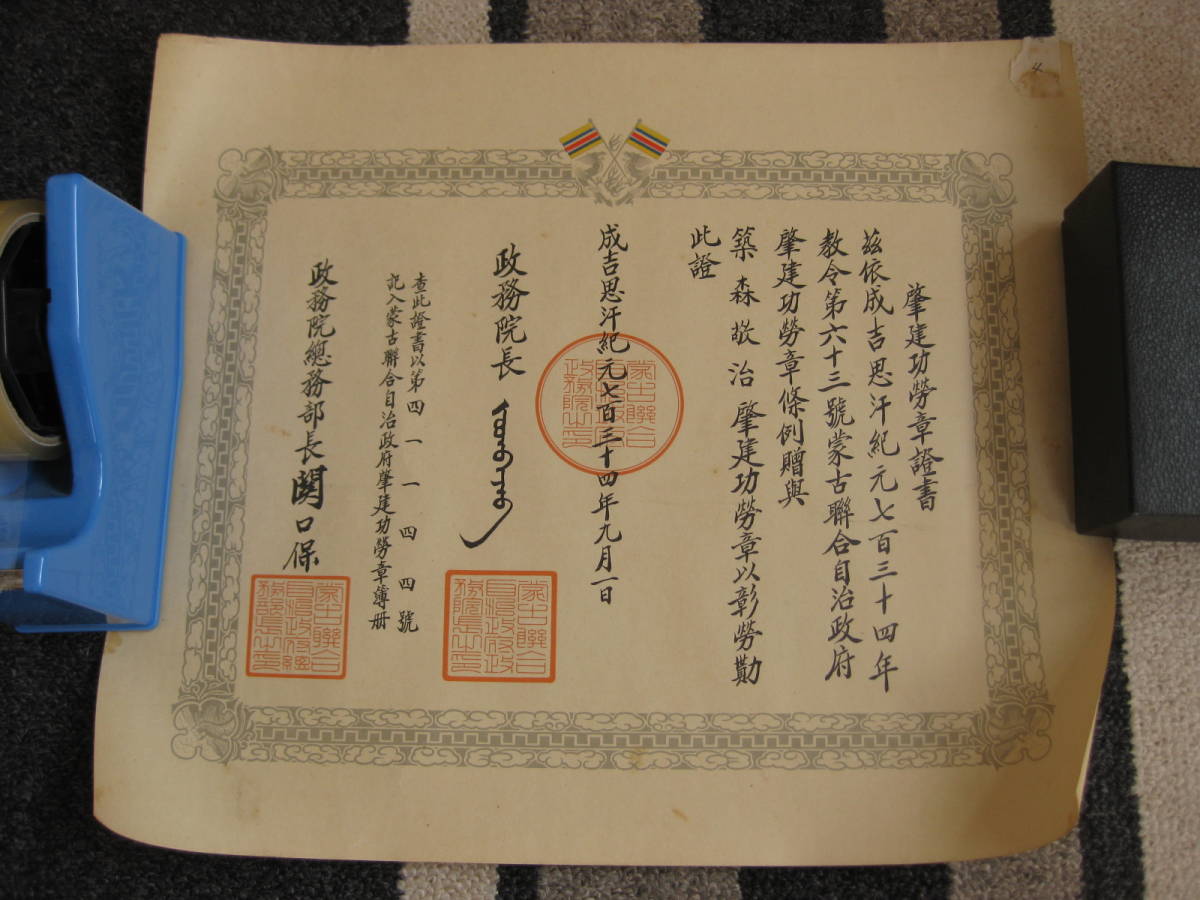 肇建功勞章證書
茲依成吉思汗紀元七百三十四年
教令第六十三號蒙古聯合自治政府
肇建功勞章條例贈與
築森敬治肇建功勞章以彰勞勩
此證
成吉思汗紀元七百三十四年九月一日
蒙古聯合
自治政府
政務院之印
政務院長
蒙古聯合
自治政府政
務院長之印
查此證書以第四一一四四號
記入蒙古聯合自治政府肇建功勞章簿冊
政務院總務部長関口保
蒙古聯合
自治政府總
務部長之印
4